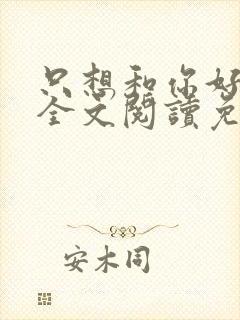 只想和你好
全文閱讀免
安木同